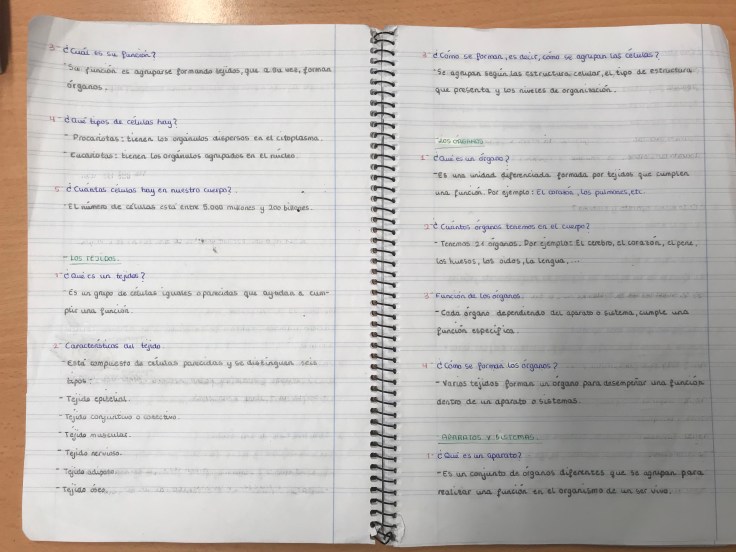 3- ¿Cuál es su función?
-Su función es agruparse formando tejidos, que a su vez, forman
órganos.
4- ¿Qué tipos de células hay?
-Procariotas: tienen los orgánulos dispersos en el citoplasma.
-Eucariotas: tienen los orgánulos agrupados en el núcleo.
5- ¿Cuántas células hay en nuestro cuerpo?
-El número de células está entre 5.000 millones y 200 billones.
- LOS TEJIDOS.
1- ¿Qué es un tejido?
-Es un grupo de células iguales o parecidas que ayudan a cum-
plir una función.
2- Características del tejido.
-Está compuesto de células parecidas y se distinguen seis
tipos:
-Tejido epitelial.
-Tejido conjuntivo o conectivo.
-Tejido muscular.
-Tejido nervioso.
-Tejido adiposo.
-Tejido óseo.
3- ¿Cómo se forman, es decir, cómo se agrupan las células?
-Se agrupan según las estructura celular, el tipo de estructura
que presenta y los niveles de organización.
- LOS ÓRGANOS
1- ¿Qué es un órgano?
-Es una unidad diferenciada formada por tejidos que cumplen
una función. Por ejemplo: El corazón, los pulmones, etc.
2- ¿Cuántos órganos tenemos en el cuerpo?
-Tenemos órganos. Por ejemplo: El cerebro, el corazón, el pene,
los huesos, los oídos, la lengua,...
3- Función de los órganos.
-Cada órgano, dependiendo del aparato o sistema, cumple una
función específica.
4- ¿Cómo se forman los órganos?
-Varios tejidos forman un órgano para desempeñar una función
dentro de un aparato o sistemas.
- APARATOS Y SISTEMAS.
1- ¿Qué es un aparato?
-Es un conjunto de órganos diferentes que se agrupan para
realizar una función en el organismo de un ser vivo.